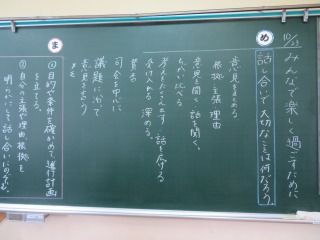 10/23 みんなで楽しく過ごすために
め
話し合いで大切なことは何だろう。
意見をまとめる
根拠 主張 理由
意見を聞く 話を聞く。
考えをたくさん出す 話を広げる
受け入れる 深める。
賛否
司会を中心に
議題に沿って
意見を言う
メモ
ま
①目的や条件を確かめて、進行計画
を立てる。
②自分の主張や理由、根拠を
明らかにして話し合いにのぞむ。